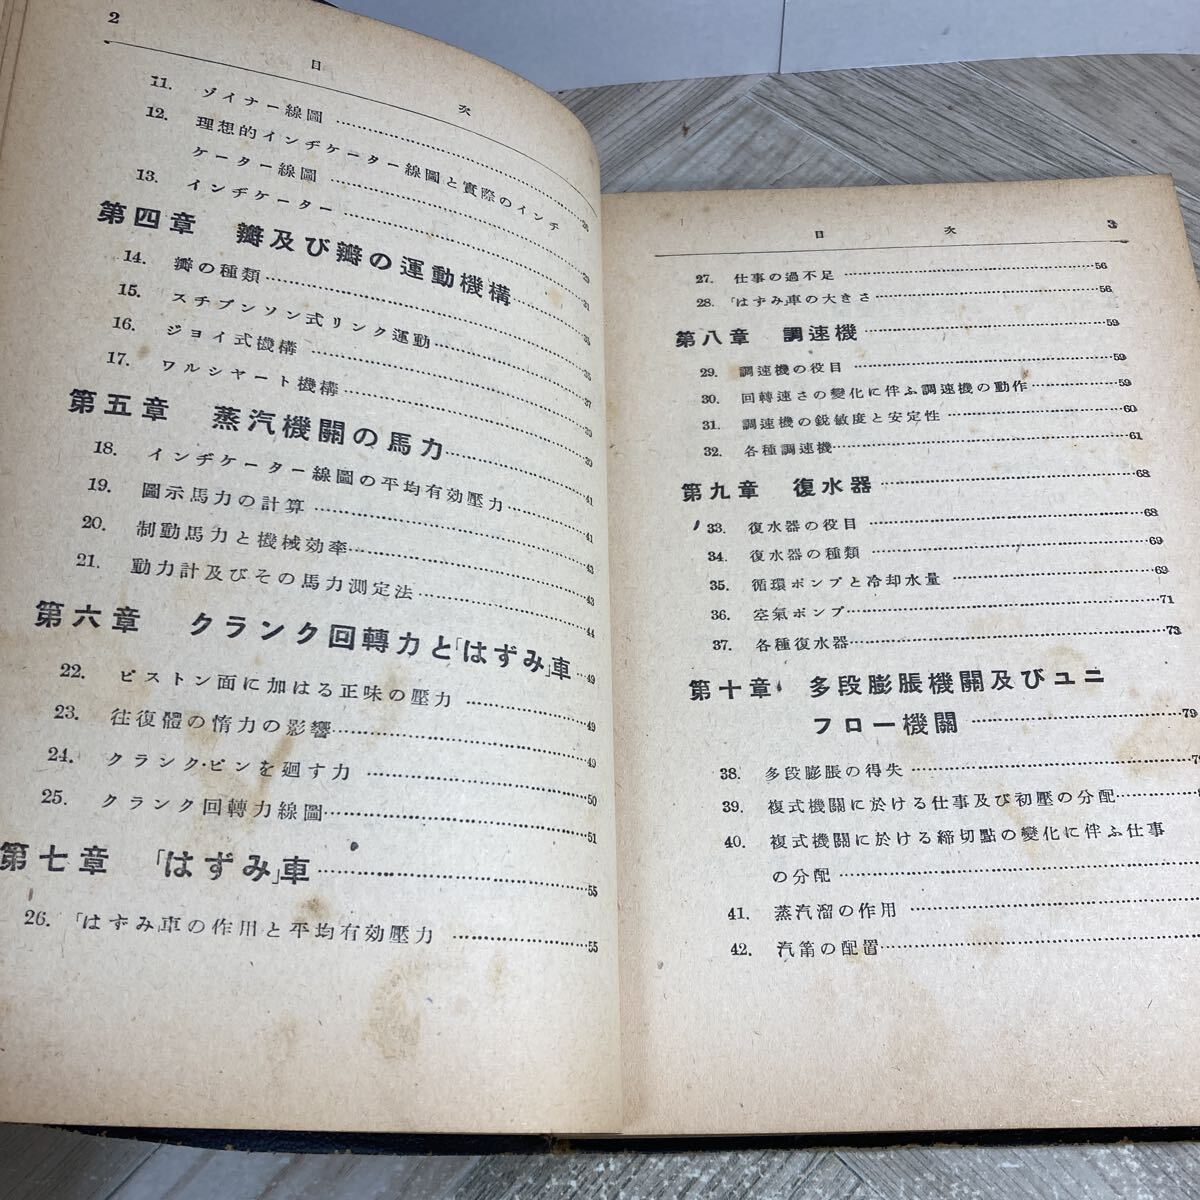 2
目次
11. ゾイナー線圖
12. 理想的インヂケーター線圖と實際のインヂ
ケーター線圖
13. インヂケーター
第四章 瓣及び瓣の運動機構
14. 瓣の種類
15. スチブンソン式リンク運動
16. ジヨイ式機構
17. ワルシヤート機構
第五章 蒸汽機關の馬力
18. インヂケーター線圖の平均有効壓力
19. 圖示馬力の計算
20. 制動馬力と機械効率
21. 動力計及びその馬力測定法
第六章 クランク回轉力と「はずみ」車 49
22. ピストン面に加はる正味の壓力 49
23. 往復體の惰力の影響 49
24. クランク・ピンを廻す力 50
25. クランク回轉力線圖 51
第七章 「はずみ」車 55
26. 「はずみ」車の作用と平均有効壓力 55
目次 3
27. 仕事の過不足 56
28. 「はずみ」車の大きさ 56
第八章 調速機 59
29. 調速機の役目 59
30. 回轉速さの變化に伴ふ調速機の動作 59
31. 調速機の鋭敏度と安定性 60
32. 各種調速機 61
第九章 復水器 68
33. 復水器の役目 68
34. 復水器の種類 69
35. 循環ポンプと冷却水量 69
36. 空氣ポンプ 71
37. 各種復水器 73
第十章 多段膨脹機關及びユニ
フロー機關 79
38. 多段膨脹の得失
39. 複式機關に於ける仕事及び初壓の分配
40. 複式機關に於ける締切點の變化に伴ふ仕事
の分配
41. 蒸汽溜の作用
42. 汽筩の配置